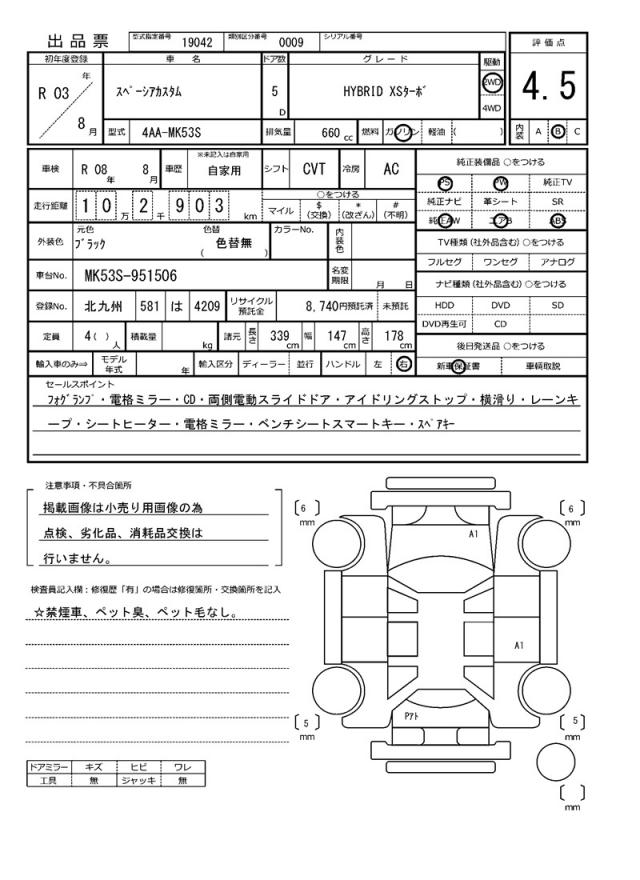 出品票 型式指定番号 19042 類別区分番号 0009 シリアル番号
初年度登録 車名 ドア数 グレード 駆動 評価点
R 03 年 8 月 スペーシアカスタム 5 D HYBRID XSターボ 2WD 4WD 4.5
型式 4AA-MK53S 排気量 660 cc 燃料 ガソリン 軽油 ( ) 内装 A B C
車検 R 08 年 8 月 車歴 ※未記入は自家用 自家用 シフト CVT 冷房 AC
走行距離 1 0 万 2 千 9 0 3 km ○をつける
マイル $ (交換) * (改ざん) # (不明)
外装色 元色 ブラック 色替 色替無 ( ) カラーNo. 内装色
車台No. MK53S-951506 名変期限 月 日
登録No. 北九州 581 は 4209 リサイクル預託金 8,740円預託済 未預託
定員 4( ) 人 積載量 kg 諸元 長さ 339 cm 幅 147 cm 高さ 178 cm
輸入車のみ⇒ モデル年式 年 輸入区分 ディーラー 並行 ハンドル 左 右
純正装備品 ○をつける
PS PW 純正TV
純正ナビ 革シート SR
純正AW エアB ABS
TV種類 (社外品含む) ○をつける
フルセグ ワンセグ アナログ
ナビ種類 (社外品含む) ○をつける
HDD DVD SD
DVD再生可 CD
後日発送品 ○をつける
新車保証書 車輌取説
セールスポイント
フォグランプ・電格ミラー・CD・両側電動スライドドア・アイドリングストップ・横滑り・レーンキ
ープ・シートヒーター・電格ミラー・ベンチシートスマートキー・スペアキー
注意事項・不具合箇所
掲載画像は小売り用画像の為
点検、劣化品、消耗品交換は
行いません。
検査員記入欄：修復歴「有」の場合は修復箇所・交換箇所を記入
☆禁煙車、ペット臭、ペット毛なし。
ドアミラー キズ ヒビ ワレ
工具 無 ジャッキ 無
[ 6 ] mm
[ 6 ] mm
A1
A1
Pアト
[ 5 ] mm
[ 5 ] mm
[ ] mm